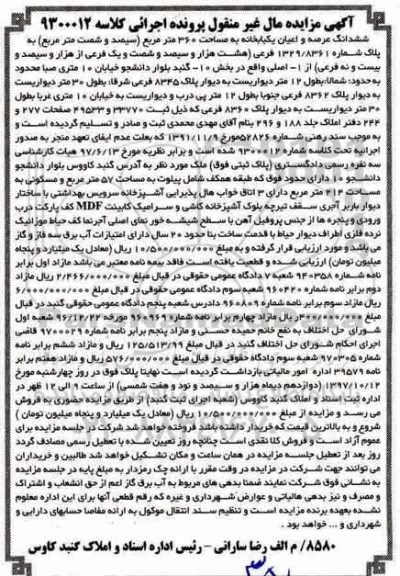 آگهی مزایده مال غیر منقول پرونده اجرائی کلاسه ۹۳۰۰۰۱۲
ششدانگ عرصه و اعیان یکبابخانه به مساحت ۳۶۰ متر مربع (سیصد و شصت متر مربع) به
پلاک شماره ۱۳۲۹/۸۳۶۱ فرعی (هشت هزار و سیصد و شصت و یک فرعی از هزار و سیصد و
بیست و نه فرعی) از ۱- اصلی واقع در بخش ۱۰- گنبد بلوار دانشجو خیابان ۱۰ متری صبا محدود
به حدود: شمالا: بطول ۱۲ متر دیواریست به دیوار پلاک ۸۳۴۵ فرعی شرقا: بطول ۳۰ متر دیواریست
به دیوار پلاک ۸۳۶۲ فرعی جنوبا بطول ۱۲ متر پی درب و دیواریست به خیابان ۱۰ متری غربا بطول
۳۰ متر دیواریست به دیوار پلاک ۸۳۶۰ فرعی که ذیل ثبت ۳۳۷۷۰ و ۴۹۵۳۳ صفحات ۲۷۷ و
۲۴۴ دفتر املاک جلد ۱۸۸ و ۲۹۶ بنام آقای مهدی محمدی ثبت و صادر و تسلیم گردیده است و
به موجب سند رهنی شماره ۵۲۸۲۶ مورخ ۱۳۹۱/۱۱/۹ که بعلت عدم ایفای تعهد منجر به صدور
اجرائیه تحت کلاسه شماره ۹۳۰۰۰۱۲ شده است و برابر نظریه مورخ ۹۷/۶/۱۳ هیات کارشناسی
سه نفره رسمی دادگستری (پلاک ثبتی فوق) ملک مورد نظر به آدرس گنبد کاووس بلوار دانشجو
دانشجو ۱۰ دارای حدود فوق که طبقه همکف شامل پیلوت به مساحت ۵۷ متر مربع و مسکونی به
مساحت ۲۱۴ متر مربع دارای ۳ اتاق خواب هال پذیرایی آشپزخانه سرویس بهداشتی با ساختار
دیوار باربر آجری سقف تیرچه بلوک آشپزخانه کاشی و سرامیک کابینت MDF کف پارکت درب
ورودی و پنجره ها از جنس پروفیل آهن با سطح شیشه خور نمای اصلی آجرنما کف حیاط موزائیک
نرده فلزی اطراف دیوار حیاط با قدمت ساخت بنا حدود ۲۰ سال دارای امتیازات آب برق سه فاز و گاز
می باشد و مورد ارزیابی قرار گرفته و به مبلغ ۱۰/۵۰۰/۰۰۰/۰۰۰ ریال (معادل یک میلیارد و پنجاه
میلیون تومان) ارزیابی شده و قطعیت یافته است فاقد بیمه نامه معتبر می باشد مازاد اول برابر
نامه شماره ۹۴۰۳۵۸ شعبه ۷ دادگاه عمومی حقوقی در قبال مبلغ ۲/۴۶۶/۰۰۰/۰۰۰ ریال مازاد
دوم برابر نامه شماره ۹۶۰۴۲۰ شعبه سوم دادگاه عمومی حقوقی در قبال مبلغ ۶/۰۰۰/۰۰۰/۰۰۰
ریال مازاد سوم برابر نامه شماره ۹۶۰۸۰۹ دادرس شعبه پنجم دادگاه عمومی حقوقی گنبد در قبال
مبلغ ۴۰۰۰/۰۰۰/۰۰۰ ریال مازاد چهارم برابر نامه شماره ۹۶۰۷۶۹ مورخه ۹۶/۱۲/۲۲ شعبه اول
شورای حل اختلاف به نفع خانم حمیده حسنی و مازاد پنجم برابر نامه شماره ۹۷۰۰۰۲۹ قاضی
اجرای احکام شورای حل اختلاف گنبد در قبال مبلغ ۱۲۵/۵۱۳/۹۹ ریال و مازاد ششم برابر نامه
شماره ۹۷۰۳۰۵ شعبه سوم دادگاه حقوقی در قبال مبلغ ۵۷۶/۰۰۰/۰۰۰ ریال و مازاد هفتم برابر
نامه ۳۹۵۷۹ اداره امور مالیاتی بازداشت گردیده است نهایتا پلاک فوق در روز چهارشنبه مورخ
۱۳۹۷/۱۰/۱۲ (دوازدهم دیماه هزار و سیصد و نود و هفت شمسی) از ساعت ۹ الی ۱۲ ظهر در
اداره ثبت اسناد و املاک گنبد کاووس (شعبه اجرای ثبت گنبد) از طریق مزایده حضوری به فروش
می رسد و مزایده از مبلغ ۱۰/۵۰۰/۰۰۰/۰۰۰ ریال (معادل یک میلیارد و پنجاه میلیون تومان)
شروع و به بالاترین قیمت که خریدار داشته باشد فروخته خواهد شد شرکت در جلسه مزایده برای
عموم آزاد است و فروش کلا نقدی است چنانچه روز تعیین شده با تعطیل رسمی مصادف گردد
روز بعد از تعطیل جلسه مزایده در همان ساعت و مکان تشکیل خواهد شد طالبین و خریداران
می توانند جهت شرکت در مزایده در وقت مقرر با ارائه چک رمزدار به مبلغ پایه در جلسه مزایده
به نشانی فوق شرکت نمایند ضمنا بدهی های مربوط به آب برق گاز اعم از حق انشعاب و اشتراک
و مصرف و نیز بدهی مالیاتی و عوارض شهرداری و غیره که رقم قطعی آنها برای این اداره معلوم
نشده بعهده برنده مزایده است و تنظیم سند انتقال موکول به ارائه مفاصا حسابهای دارایی و
شهرداری و ... خواهد بود .
۸۵۸۰/ م الف رضا سارانی – رئیس اداره اسناد و املاک گنبد کاوس